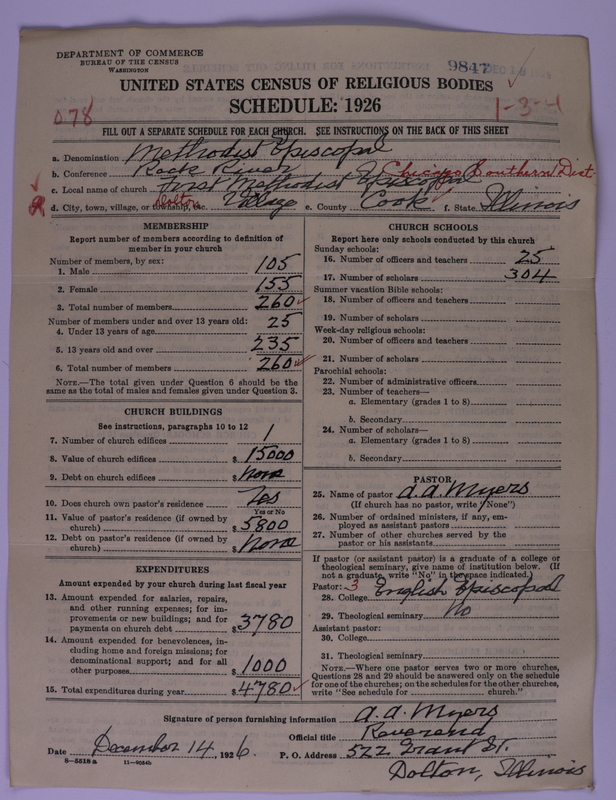 DEPARTMENT OF COMMERCE
BUREAU OF THE CENSUS
WASHINGTON
9847
UNITED STATES CENSUS OF RELIGIOUS BODIES
SCHEDULE: 1926
078
1-3-4
FILL OUT A SEPARATE SCHEDULE FOR EACH CHURCH. SEE INSTRUCTIONS ON THE BACK OF THIS SHEET
a. Denomination Methodist Episcopal
b. Conference Rock River Chicago Southern Dist.
c. Local name of church First Methodist Episcopal
d. City, town, village, or township, etc. Dolton Village e. County Cook f. State Illinois
MEMBERSHIP
Report number of members according to definition of member in your church
Number of members, by sex:
1. Male 105
2. Female 155
3. Total number of members 260
Number of members under and over 13 years old:
4. Under 13 years of age 25
5. 13 years old and over 235
6. Total number of members 260
NOTE.—The total given under Question 6 should be the same as the total of males and females given under Question 3.
CHURCH BUILDINGS
See instructions, paragraphs 10 to 12
7. Number of church edifices 1
8. Value of church edifices $ 15000
9. Debt on church edifices $ None
10. Does church own pastor's residence Yes
Yes or No
11. Value of pastor's residence (if owned by church) $ 5800
12. Debt on pastor's residence (if owned by church) $ None
EXPENDITURES
Amount expended by your church during last fiscal year
13. Amount expended for salaries, repairs, and other running expenses; for improvements or new buildings; and for payments on church debt $ 3780
14. Amount expended for benevolences, including home and foreign missions; for denominational support; and for all other purposes $ 1000
15. Total expenditures during year $ 4780
CHURCH SCHOOLS
Report here only schools conducted by this church
Sunday schools:
16. Number of officers and teachers 25
17. Number of scholars 304
Summer vacation Bible schools:
18. Number of officers and teachers
19. Number of scholars
Week-day religious schools:
20. Number of officers and teachers
21. Number of scholars
Parochial schools:
22. Number of administrative officers
23. Number of teachers—
a. Elementary (grades 1 to 8)
b. Secondary
24. Number of scholars—
a. Elementary (grades 1 to 8)
b. Secondary
PASTOR
25. Name of pastor A. A. Myers
(If church has no pastor, write "None")
26. Number of ordained ministers, if any, employed as assistant pastors
27. Number of other churches served by the pastor or his assistants
If pastor (or assistant pastor) is a graduate of a college or theological seminary, give name of institution below. (If not a graduate, write "No" in the space indicated.)
Pastor: 3
28. College English Episcopal
29. Theological seminary No
Assistant pastor:
30. College
31. Theological seminary
NOTE.—Where one pastor serves two or more churches, Questions 28 and 29 should be answered only on the schedule for one of the churches; on the schedules for the other churches, write "See schedule for church."
Signature of person furnishing information A. A. Myers
Official title Reverend
Date December 14, 1926. P. O. Address 522 Grant St.
Dolton, Illinois
8-5518a 11-9024b